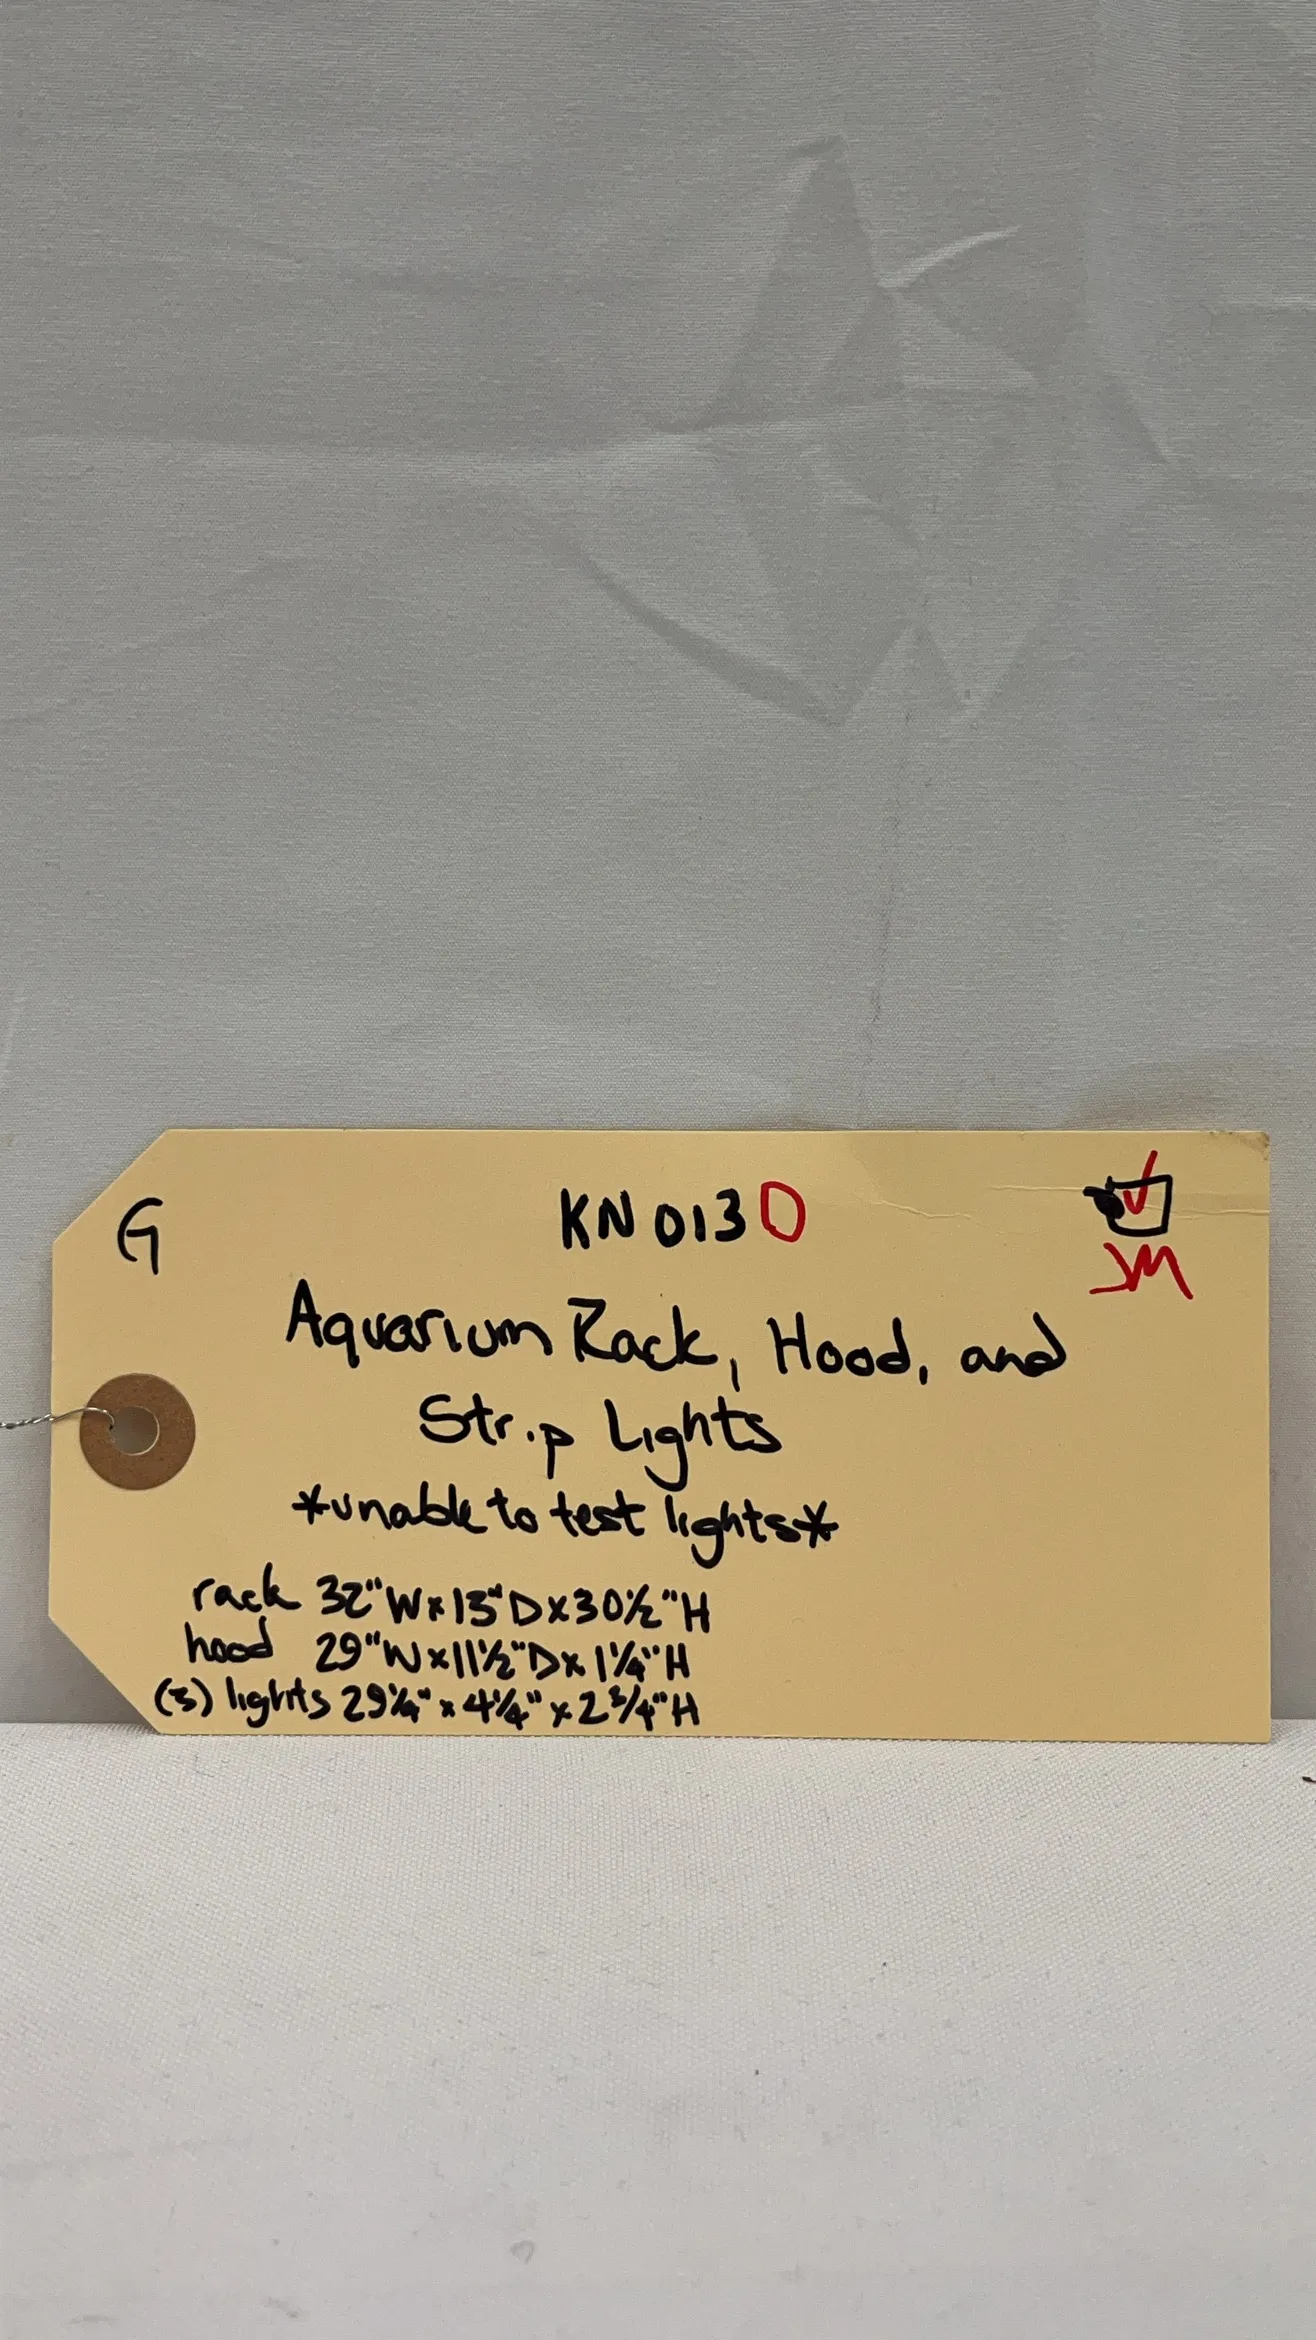 G
KN0130
JM
Aquarium Rack, Hood, and
Strip Lights
*unable to test lights*
rack 32"W x 13"D x 30 1/2"H
hood 29"W x 11 1/2"D x 1 1/4"H
(3) lights 29 1/4" x 4 1/4" x 2 3/4"H